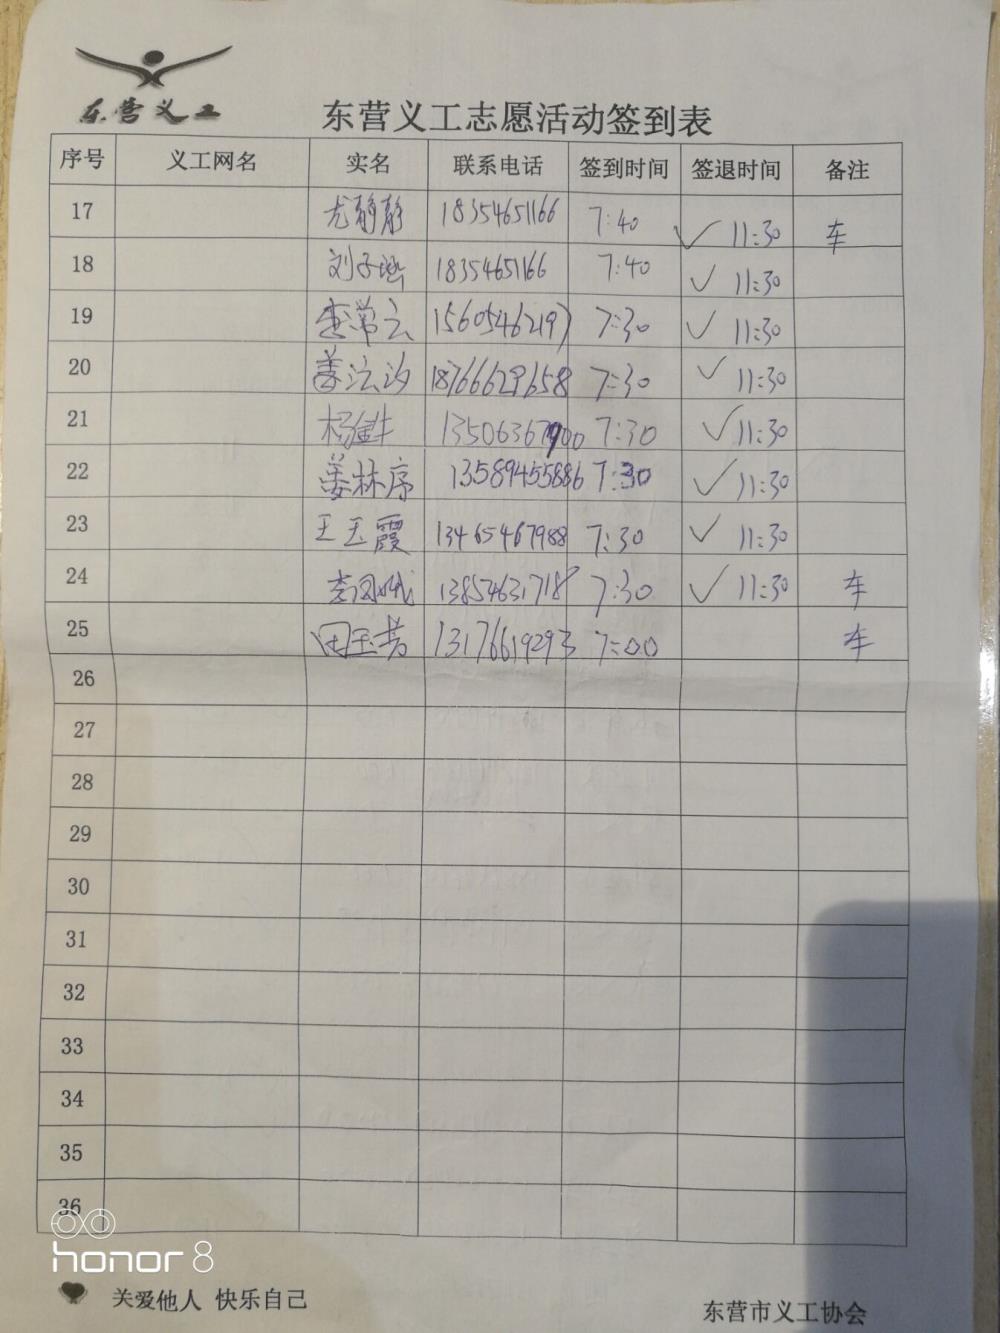 东营义工
东营义工志愿活动签到表
序号 义工网名 实名 联系电话 签到时间 签退时间 备注
17 尤静静 18354651166 7:40 ✓ 11:30 车
18 刘子涵 18354651166 7:40 ✓ 11:30
19 李常云 15605462197 7:30 ✓ 11:30
20 姜法汐 18766629658 7:30 ✓ 11:30
21 杨 13506367900 7:30 ✓ 11:30
22 姜林序 13589455886 7:30 ✓ 11:30
23 王玉霞 13465467988 7:30 ✓ 11:30
24 李凤娥 13854631718 7:30 ✓ 11:30 车
25 田玉芳 13176619293 7:00 车
26
27
28
29
30
31
32
33
34
35
36
honor 8
关爱他人 快乐自己
东营市义工协会